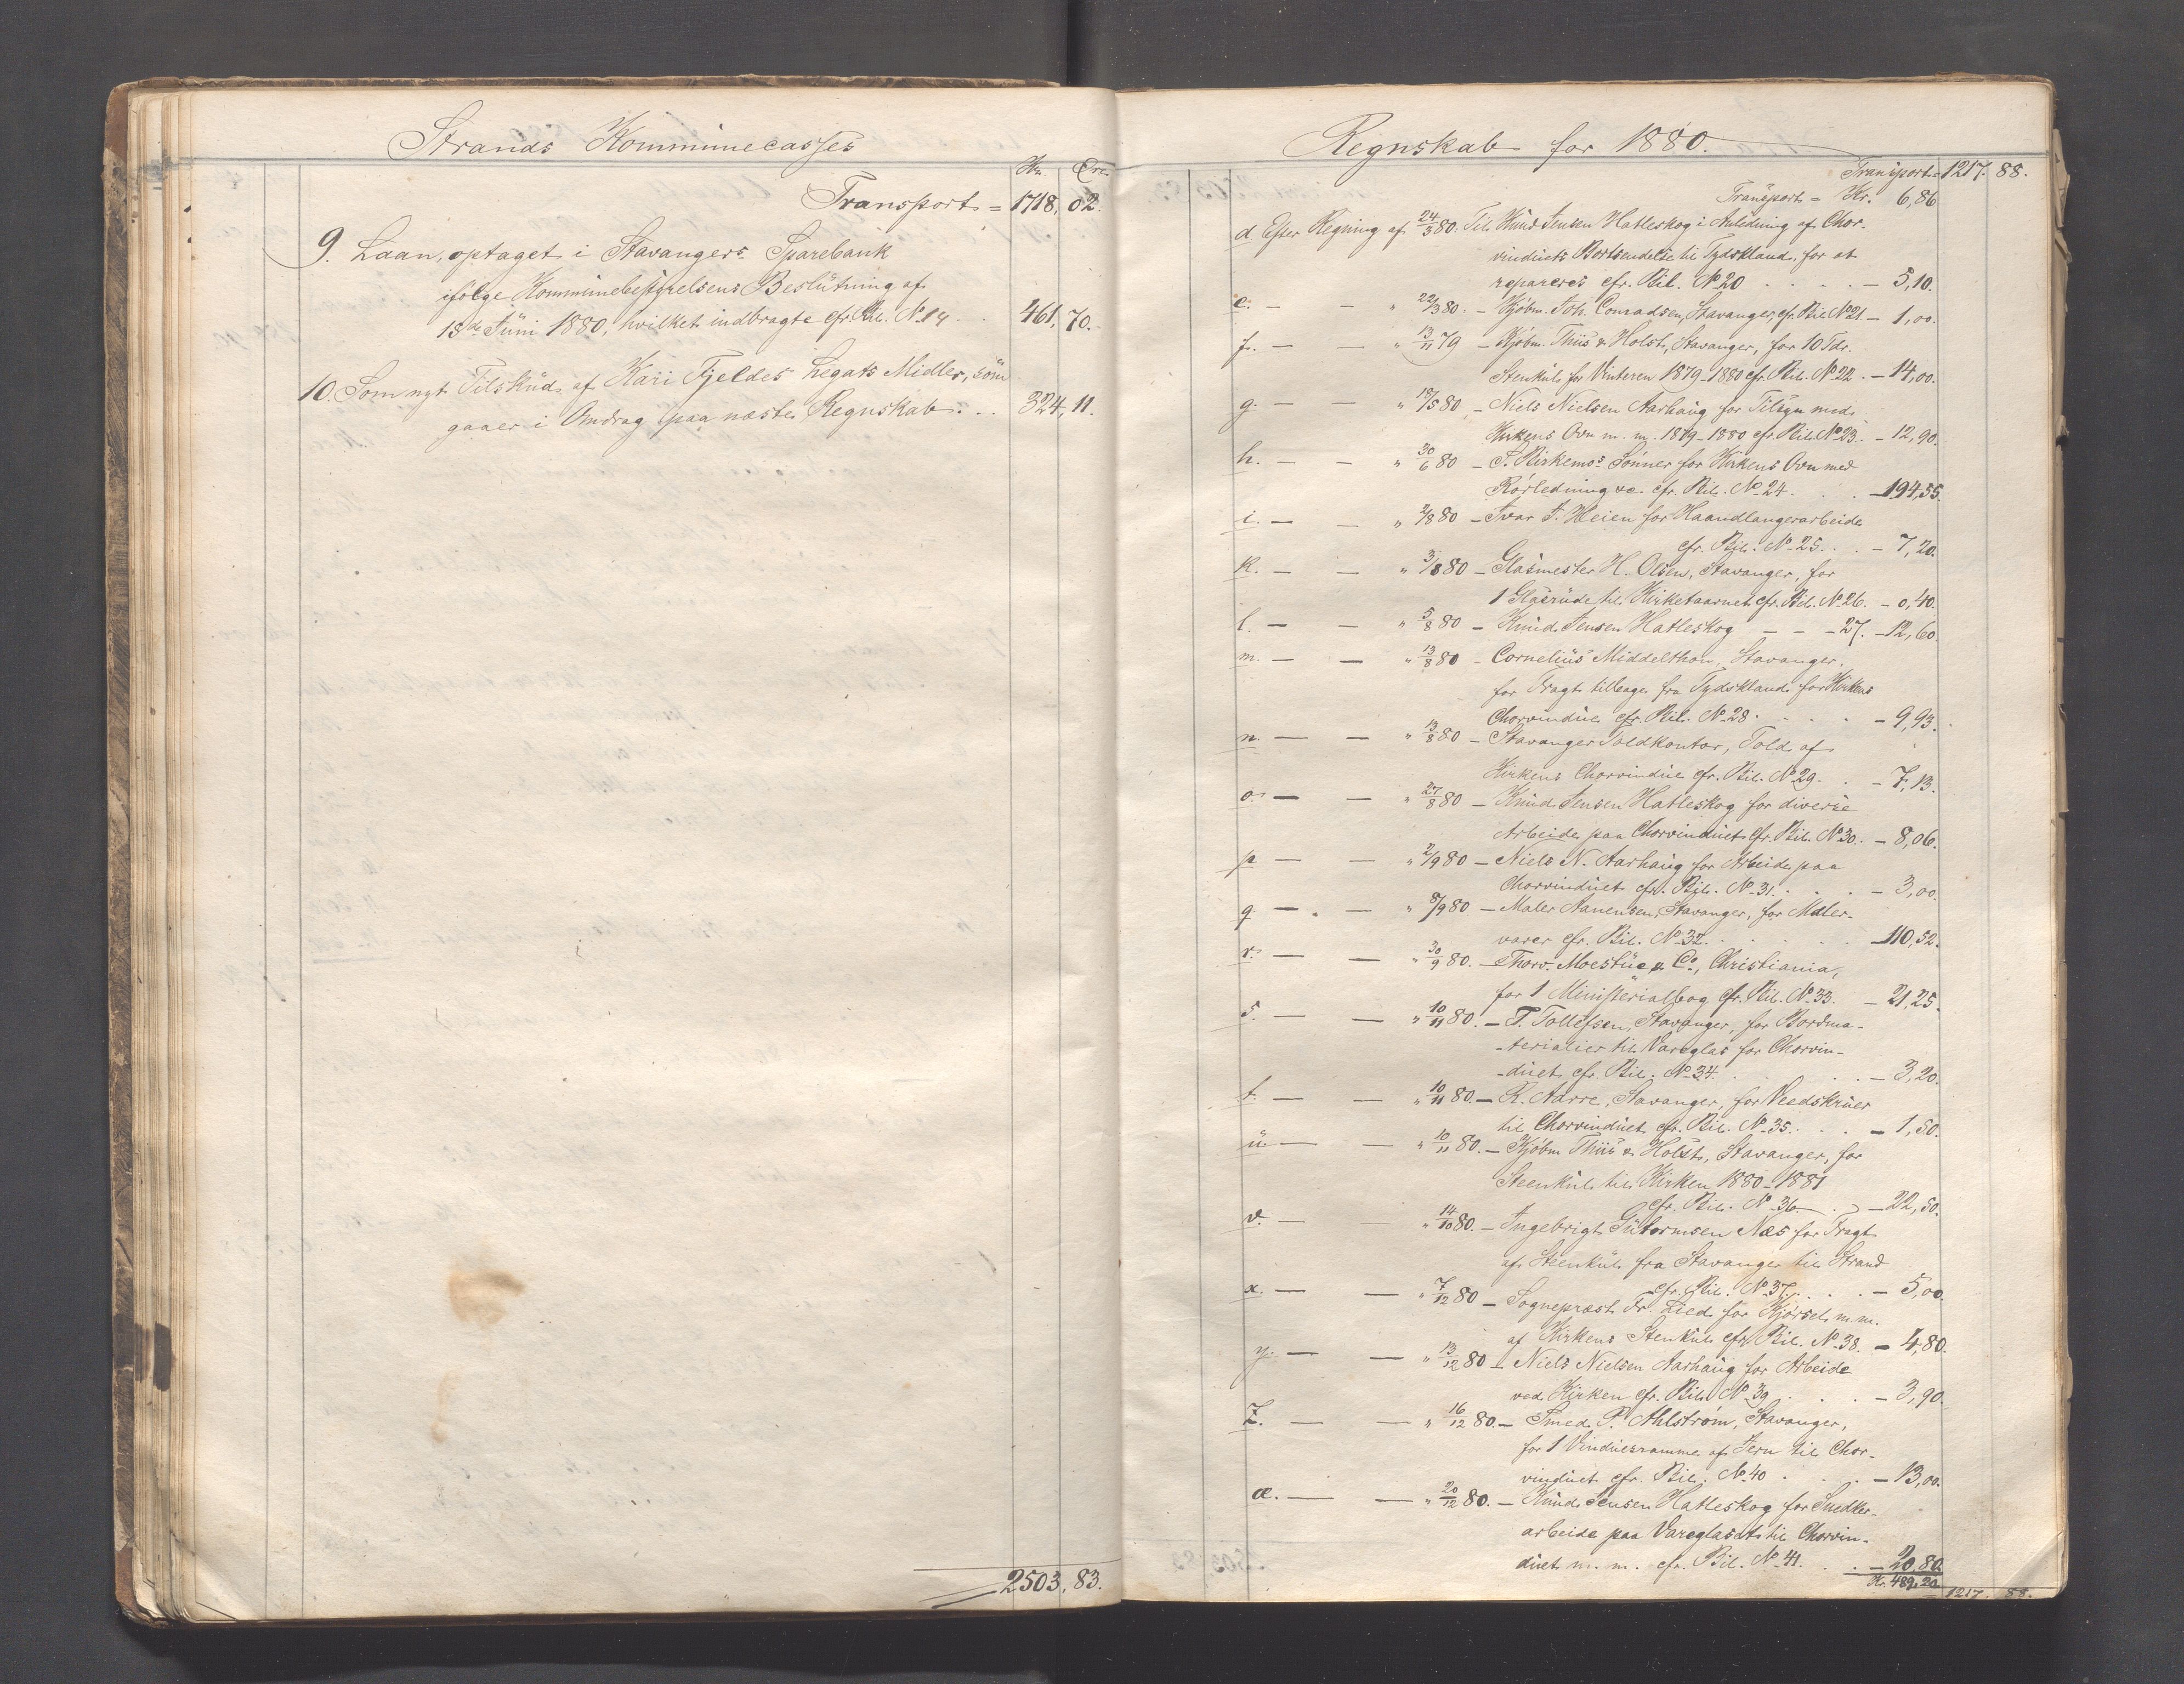 Strands Kommunecasses
Kr. Øre
Transport = 1718, 02.
9. Laan, optaget i Stavangers Sparebank
ifølge Kommunebestyrelsens Beslutning af
15de Juni 1880, hvilket indbragte cfr. Bil. No 14 .. 461, 70.
10. Som nyt Tilskud af Kari Fjeldes Legats Midler, som
gaaer i Omdrag paa næste Regnskab. .. 324, 11.
2503, 83.
Regnskab for 1880.
Transport = 1217. 88.
Transport = Kr. 6,86
d. Efter Regning af 24/3 80. Til Knud Jensen Hatleskog i Anledning af Chor-
vinduets Bortsendelse til Tydskland, for at
repareres cfr. Bil. No 20 . . . . — 5,10.
e. — — " 22/3 80. — Kjøbm. Joh. Conradsen, Stavanger, cfr. Bil No 21 — 1,00.
f. — — " 13/11 79 — Kjøbm. Thiis & Holst, Stavanger, for 10 Tdr.
Stenkul for Vinteren 1879-1880 cfr. Bil. No 22. — 14,00.
g. — — " 18/5 80 — Niels Nielsen Aarhaug for Tilsyn med
Kirkens Ovn m. m. 1879-1880 cfr. Bil. No 23. — 12,90.
h. — — " 30/6 80 — S. Kirkemos Sønner for Kirkens Ovn med
Rørledning &c. cfr. Bil. No 24. . . — 194,55.
i. — — " 2/8 80 — Ivar T. Heien for Haandlangerarbeide
cfr. Bil. No 25. . . — 7,20.
k. — — " 3/8 80 — Glasmester H. Olsen, Stavanger, for
1 Glasrude til Kirketaarnet cfr. Bil. No 26. — 0,40.
l. — — " 5/8 80 — Knud Jensen Hatleskog — — — 27. — 12,60
m. — — " 13/8 80 — Cornelius Middelthon, Stavanger,
for Fragt tilbage fra Tydskland for Kirkens
Chorvindue cfr. Bil. No 28. . . . — 9,93.
n. — — " 13/8 80 — Stavanger Toldkontor, Told af
Kirkens Chorvindue cfr. Bil. No 29. . — 7,13.
o. — — " 27/8 80 — Knud Jensen Hatleskog for diverse
Arbeide paa Chorvinduet cfr. Bil. No 30. — 8,06.
p — — " 2/9 80 — Niels N. Aarhaug for Arbeide paa
Chorvinduet cfr. Bil. No 31. . . . — 3,00.
q. — — " 8/9 80 — Maler Nanensen, Stavanger, for Maler-
varer cfr. Bil. No 32. . . . . — 110,52.
r. — — " 30/9 80. — Thorv. Moestue & Co, Christiania,
for 1 Ministerialbog cfr. Bil. No 33. — 21,25.
s. — — " 10/11 80. — T. Tollefsen, Stavanger, for Bordma-
-terialier til Vareglas for Chorvin-
-duet cfr. Bil. No 34. . . . — 3,20.
t. — — " 10/11 80. — R. Aarre, Stavanger, for Veedskruer
til Chorvinduet cfr. Bil. No 35. . . . — 1,50.
u. — — " 10/11 80. — Kjøbm Thiis & Holst, Stavanger, for
Steenkul til Kirken 1880-1881
cfr. Bil. No 36. . — 22,50.
v. — — " 14/10 80. — Ingebrigt Gutormsen Næs for Fragt
af Steenkul fra Stavanger til Strand
cfr. Bil. No 37. . . . — 5,00.
x. — — " 7/12 80 — Sogneprest Dr. Lied for Kjørsel m.m.
af Kirkens Stenkul cfr. Bil. No 38. — 4,80.
y. — — " 13/12 80 — Niels Nielsen Aarhaug for Arbeide
ved Kirken cfr. Bil. No 39 . . . — 3,90.
z. — — " 16/12 80. — Smed P. Ahlstrøm, Stavanger,
for 1 Vinduesramme af Jern til Chor-
vinduet cfr. Bil. No 40 . . . — 13,00.
æ. — — " 20/12 80. — Knud Jensen Hatleskog for Snedker-
arbeide paa Vareglaset til Chorvin-
duet m. m. cfr. Bil. No 41. . . — 20,80.
Kr. 489,20. 1217. 88.